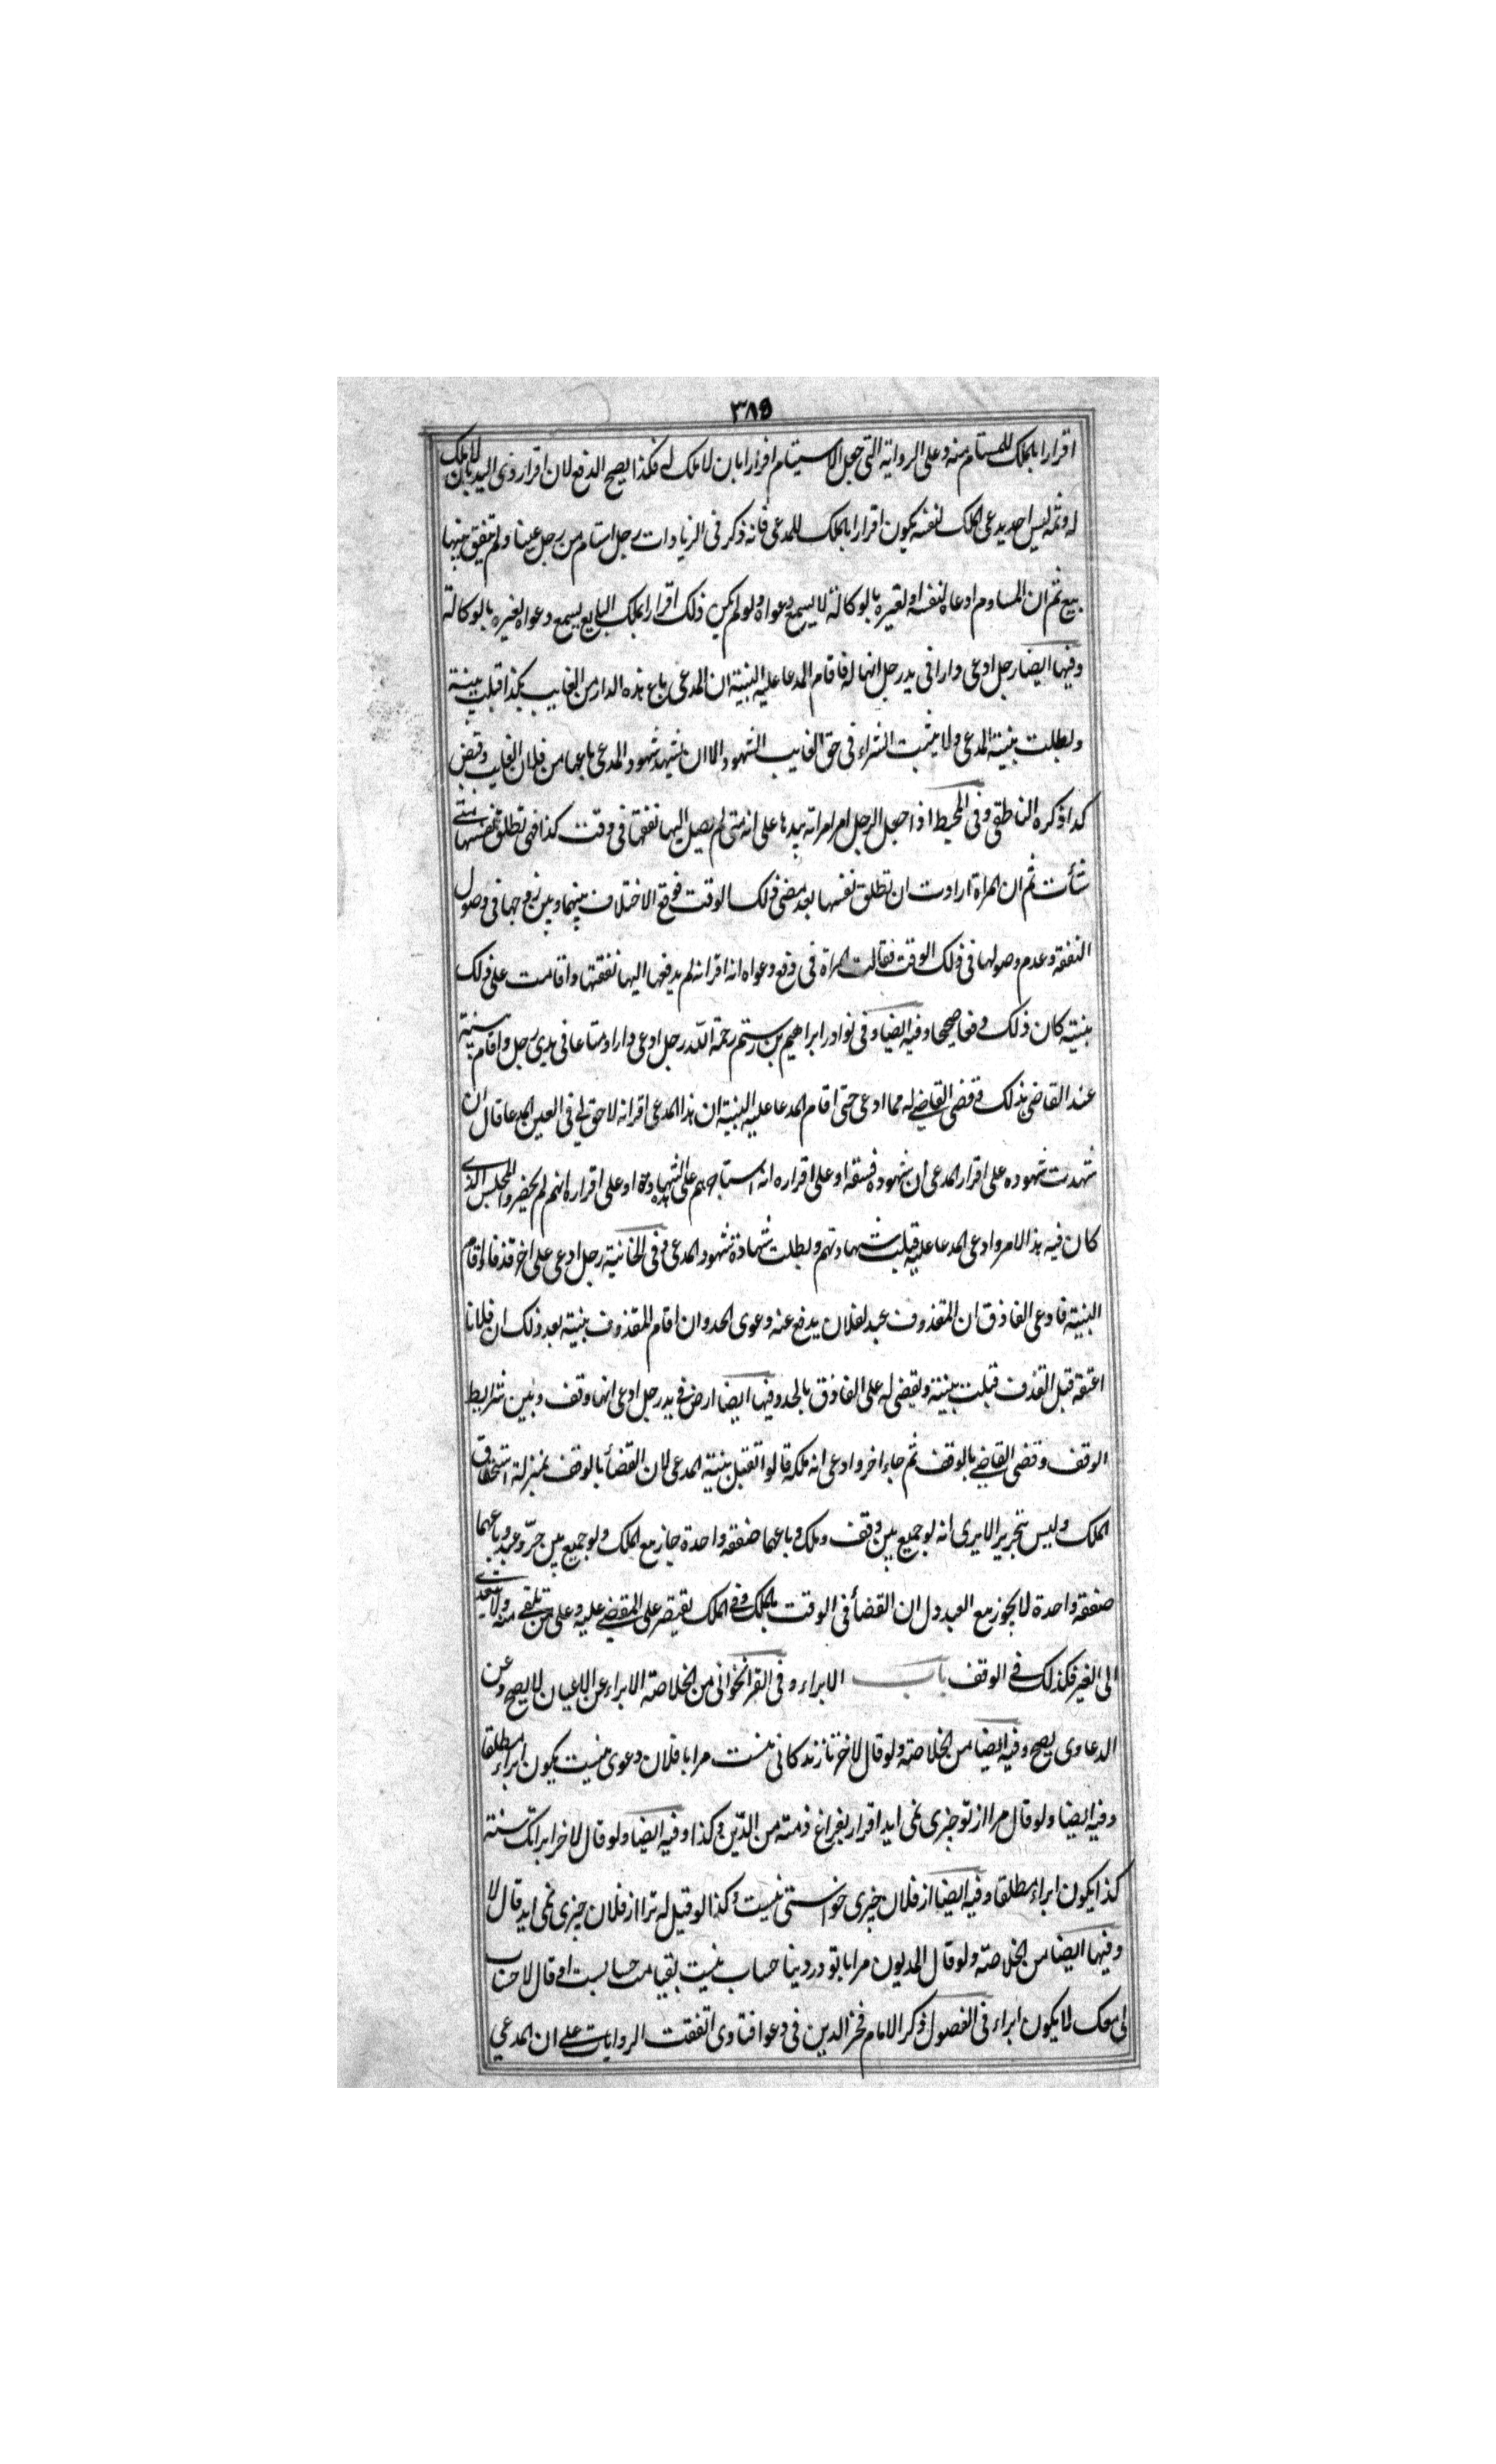 ٣٨٩
اقرارا بالملك للمستام منه وعلى الرواية التى جعل الاستيام اقرارا بان لا ملك له فكذا يصح الدفع لان اقرار ذى اليد بان لا ملك
له وثمه ليس احد يدعى الملك لنفسه يكون اقرارا بالملك للمدعى فانه ذكر فى الزيادات رجل استام من رجل عينا ولم يتفق بينهما
بيع ثم ان المساوم ادعاه لنفسه او لغيره بالوكالة لا يسمع دعواه ولو لم يكن ذلك اقرارا بملك البايع يسمع دعواه لغيره بالوكالة
وفيها ايضا رجل ادعى دارا فى يد رجل انها له فاقام المدعا عليه البينة ان المدعى باع هذه الدار من الغايب بكذا قبلت بينة
وبطلت بينة المدعى ولا يثبت الشراء فى حق الغايب الشهود الا ان يشهد شهود المدعى باعها من فلان الغايب وقبض
كذا ذكره الناطقى وفى المحيط اذا جعل الرجل امر امراته بيدها على انه متى لم يصل اليها نفقتها فى وقت كذا فهى تطلق نفسها متى
شأت ثم ان المراة ارادت ان تطلق نفسها بعد مضى ذلك الوقت فوقع الاختلاف بينهما وبين زوجها فى وصول
النفقة وعدم وصولها فى ذلك الوقت فقالت المراة فى دفع دعواه انه اقر انه لم يدفعها اليها نفقتها واقامت على ذلك
بينة كان ذلك دفعا صحيحا وفيه ايضا وفى نوادر ابراهيم بن رستم رحمة الله رجل ادعى دارا او متاعا فى يدى رجل واقام بينة
عند القاضى بذلك فقضى القاضى له مما ادعى حتى اقام المدعا عليه البينة ان هذا المدعى اقر انه لا حق لى فى العين المدعا قال ان
شهدت شهوده على اقرار المدعى ان شهوده فسقة او على اقراره انه استاجرهم على الشهادة او على اقراره انهم لم يحضروا المجلس الذى
كان فيه هذا الامر وادعى المدعا عليه قبلت شهادتهم وبطلت شهادة شهود المدعى وفى الخانية رجل ادعى على اخر قذفا واقام
البينة فادعى القاذف ان المقذوف عبد لفلان يدفع عنه دعوى الحد وان اقام المقذوف بينة بعد ذلك ان فلانا
اعتقه قبل القذف قبلت بينة ويقضى له على القاذف بالحد وفيها ايضا ارض فى يد رجل ادعى انها وقف وبين شرايط
الوقف وقضى القاضى بالوقف ثم جاء اخر وادعى انه ملكه قالوا تقبل بينة المدعى لان القضأ بالوقف بمنزلة استحقاق
الملك وليس بتحرير الا يرى انه لو جميع بين وقف وملك وباعهما صفقة واحدة جاز بيع الملك ولو جميع بين حرّ وعبد وباعهما
صفقة واحدة لا يجوز بيع العبد دل ان القضأ فى الوقت بالملك وفى الملك يقتصر على المقضى عليه وعلى من تلقى منه ولا يتعدى
الى الغير فكذلك فى الوقف باب الابراء وفى القراخوانى من الخلاصة الابراء عن الاعيان لا يصح وعن
الدعاوى يصح وفيه ايضا من الخلاصة ولو قال لاخر تا زندكانى منست مرا با فلان دعوى نيست يكون ابراء مطلقا
وفيه ايضا ولو قال مرا از تو چيزى نمى ايد اقرار بفراغ ذمته من الدّين وكذا وفيه ايضا ولو قال لاخر ابراتك سنة
كذا يكون ابراء مطلقا وفيه ايضا از فلان چيزى خواستى نيست وكذا لو قيل له ترا از فلان چيزى نمى ايد قال لا
وفيها ايضا من الخلاصة ولو قال المديون مرا با تو در دنيا حساب نيست بقيامت حسابست او قال لا حساب
لى معك لا يكون ابراء فى الفصول ذكر الامام فخر الدين فى دعوا فتاوى اتفقت الروايات على ان المدعي